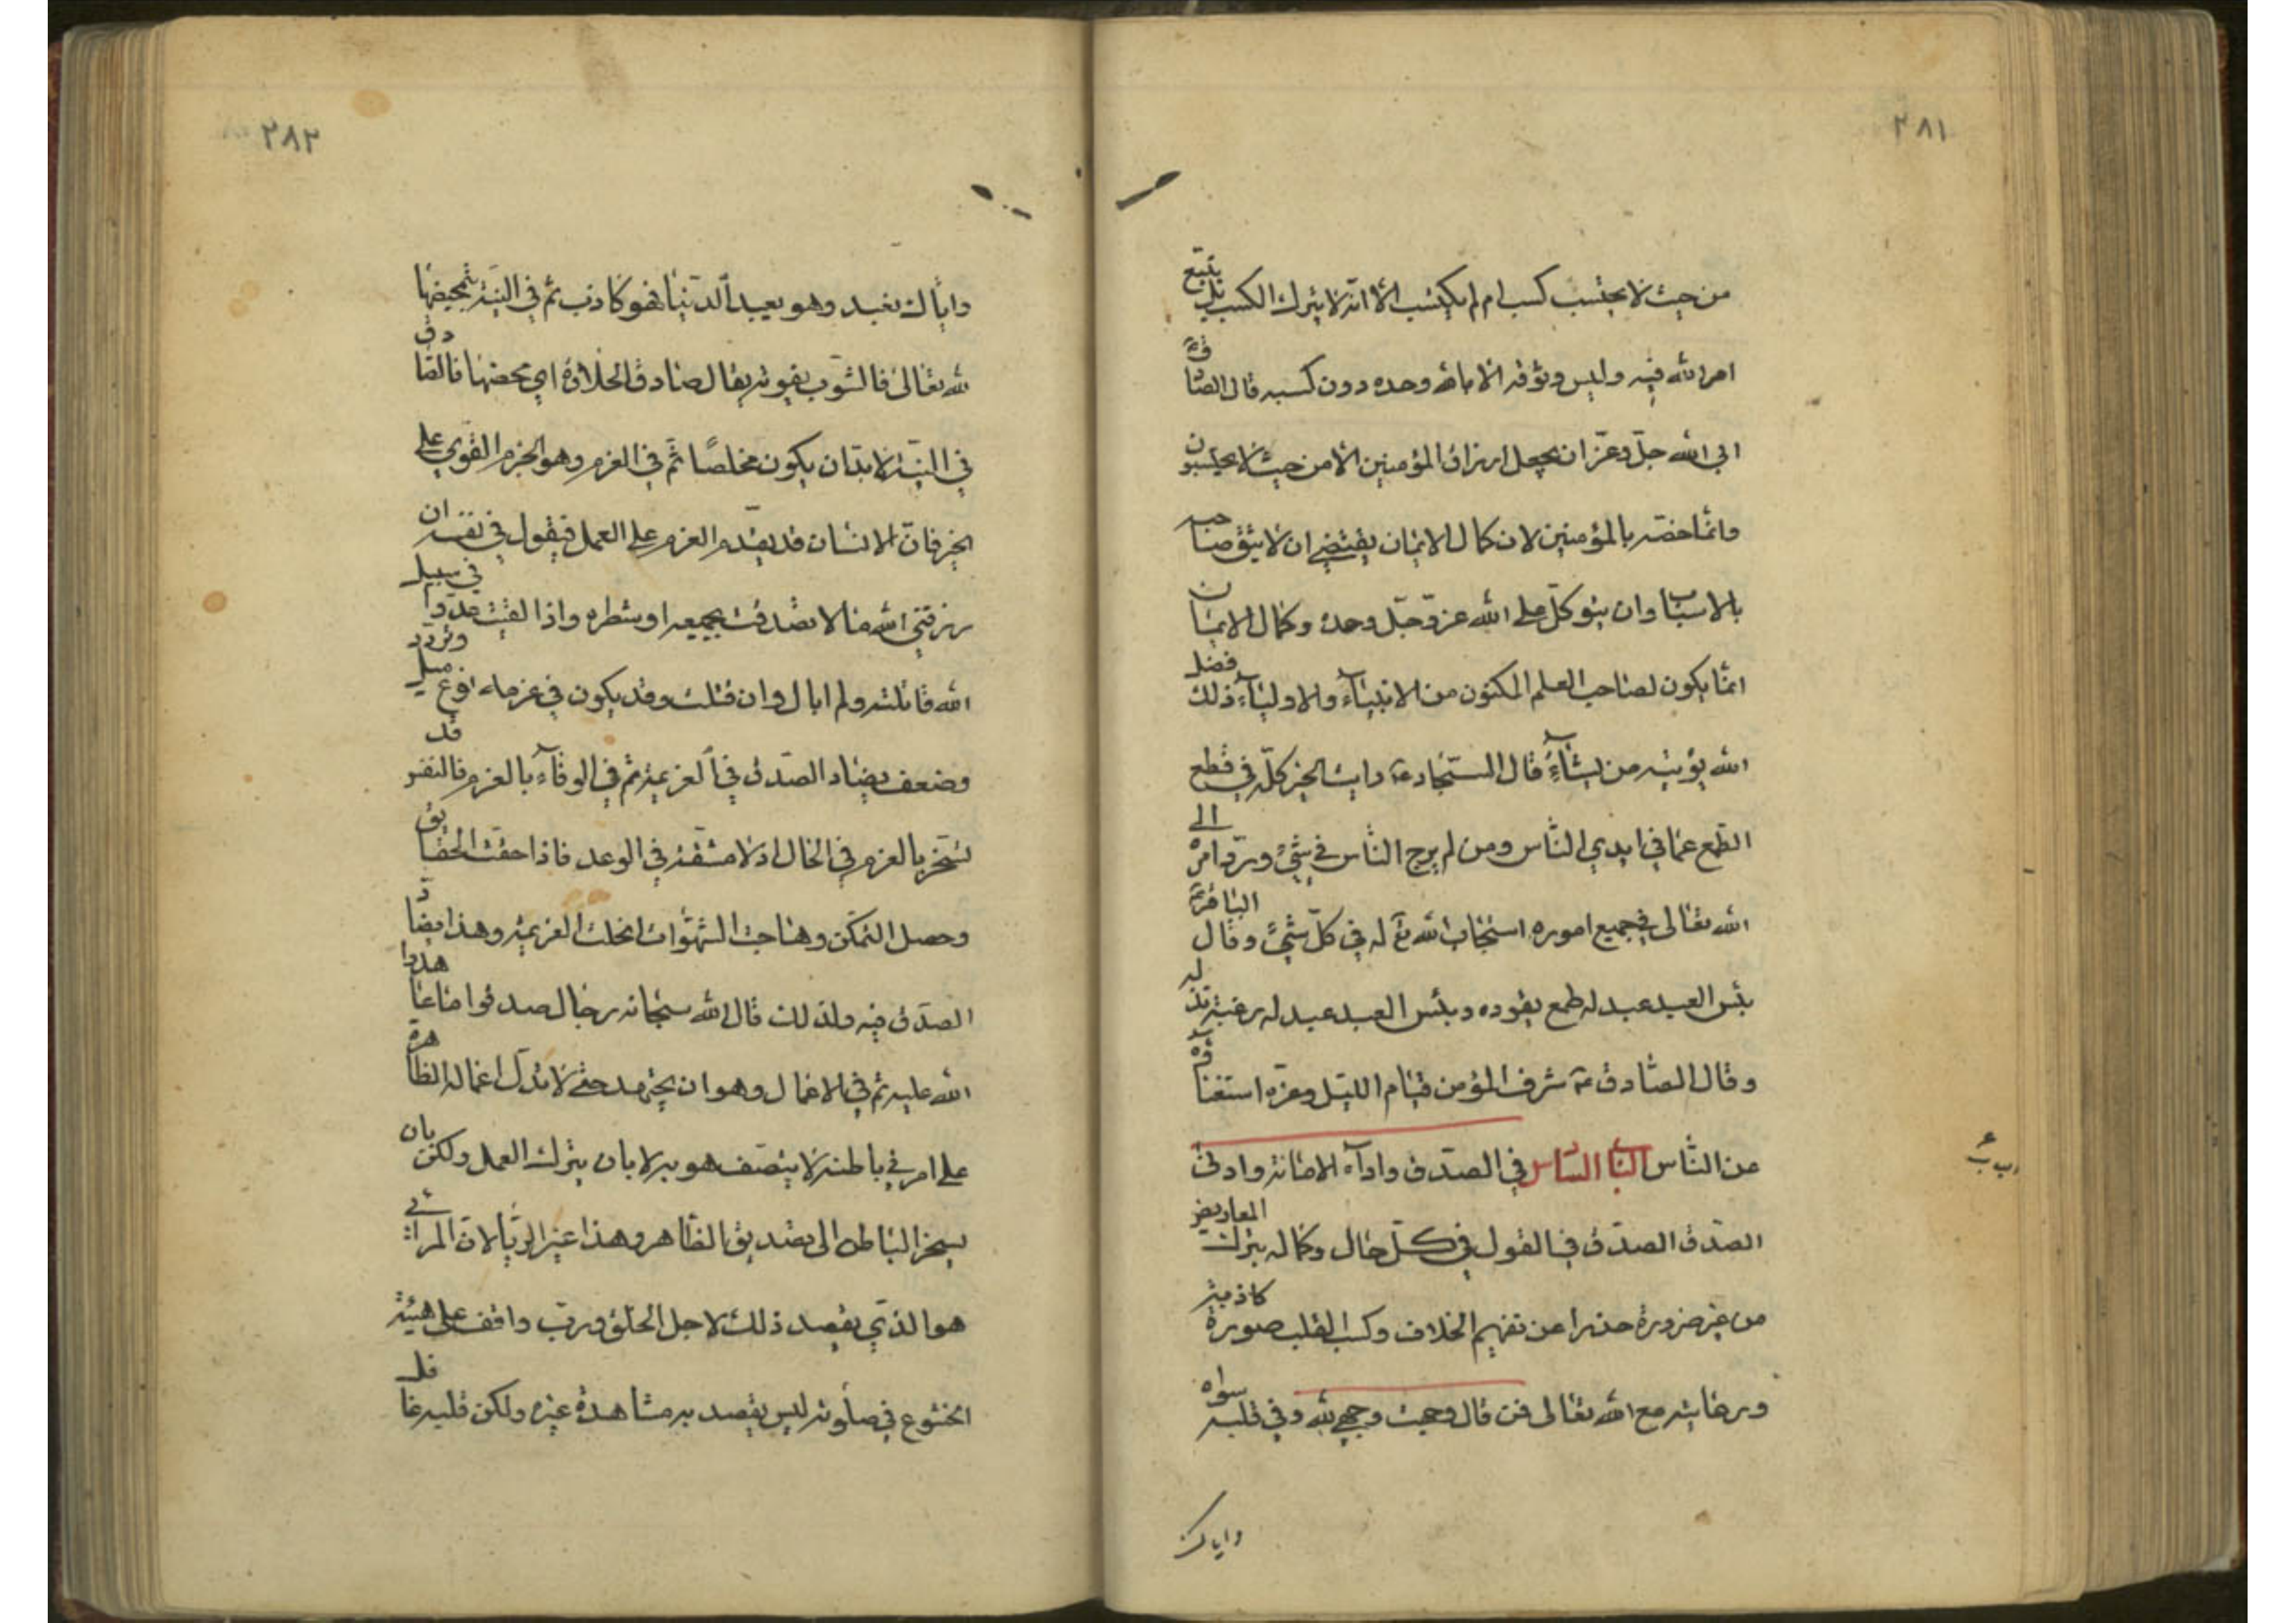 ٢٨١
من حيث لا يحتسب كسب ام لم يكتسب الا انه لا يترك الكسب بل يتبع
امر الله فيه وليس وثوقه الا بالله وحده دون كسبه قال الصادق ع
ابى الله جل وعز ان يجعل ارزاق المؤمنين الا من حيث لا يحتسبون
وانما خصه بالمؤمنين لان كمال الايمان يقتضي ان لا يثق صاحبه
بالاسباب وان يتوكل على الله عز وجل وحده وكمال الايمان
انما يكون لصاحب العلم المكنون من الانبياء والاولياء ذلك فضل
الله يؤتيه من يشاء قال السجاد ع رايت الخير كله في قطع
الطمع عما في ايدي الناس ومن لم يرج الناس في شئ ورد امره الى
الله تعالى في جميع اموره استجاب الله تع له في كل شئ وقال الباقر ع
بئس العبد عبد له طمع يقوده وبئس العبد عبد له رغبة تذله
وقال الصادق ع شرف المؤمن قيام الليل وعزه استغناؤه
عن الناس الباب السادس في الصدق واداء الامانة وادنى
الصدق الصدق في القول في كل حال وكماله بترك المعاريض
من غير ضرورة حذرا عن تفهيم الخلاف وكسب القلب صورة كاذبة
ورعايته مع الله تعالى فمن قال وجهت وجهي لله وفي قلبه سواه
واياك
٢٨٢
واياك نعبد وهو يعبد الدنيا فهو كاذب ثم في النية بتمحيضها
لله تعالى فالشوب يفوته يقال صادق الحلاوة اي محضها فالصادق
في النية لابد ان يكون مخلصا ثم في العزم وهو الجزم القوي على
الخير فان الانسان قد يقدم العزم على العمل فيقول في نفسه ان
رزقني الله مالا تصدقت بجميعه او شطره واذا لقيت عدوا في سبيل
الله قاتلته ولم ابال وان قتلت وقد يكون في عزمه نوع ميل وتردد
وضعف يضاد الصدق في العزيمة ثم في الوفاء بالعزم فالنفس قد
تسخر بالعزم في الحال اذ لا مشقة في الوعد فاذا حقت الحقايق
وحصل التمكن وهاجت الشهوات انحلت العزيمة وهذا يضاد
الصدق فيه ولذلك قال الله سبحانه رجال صدقوا ما عاهدوا
الله عليه ثم في الاعمال وهو ان يجتهد حتى لا تدل اعماله الظاهرة
على امر في باطنه لا يتصف هو به لا بان يترك العمل ولكن بان
يسخر الباطن الى تصديق الظاهر وهذا غير الريا لان المرائي
هو الذي يقصد ذلك لاجل الخلق ورب واقف على هيئة
الخشوع في صلوته ليس يقصد به مشاهدة غيره ولكن قلبه غافل